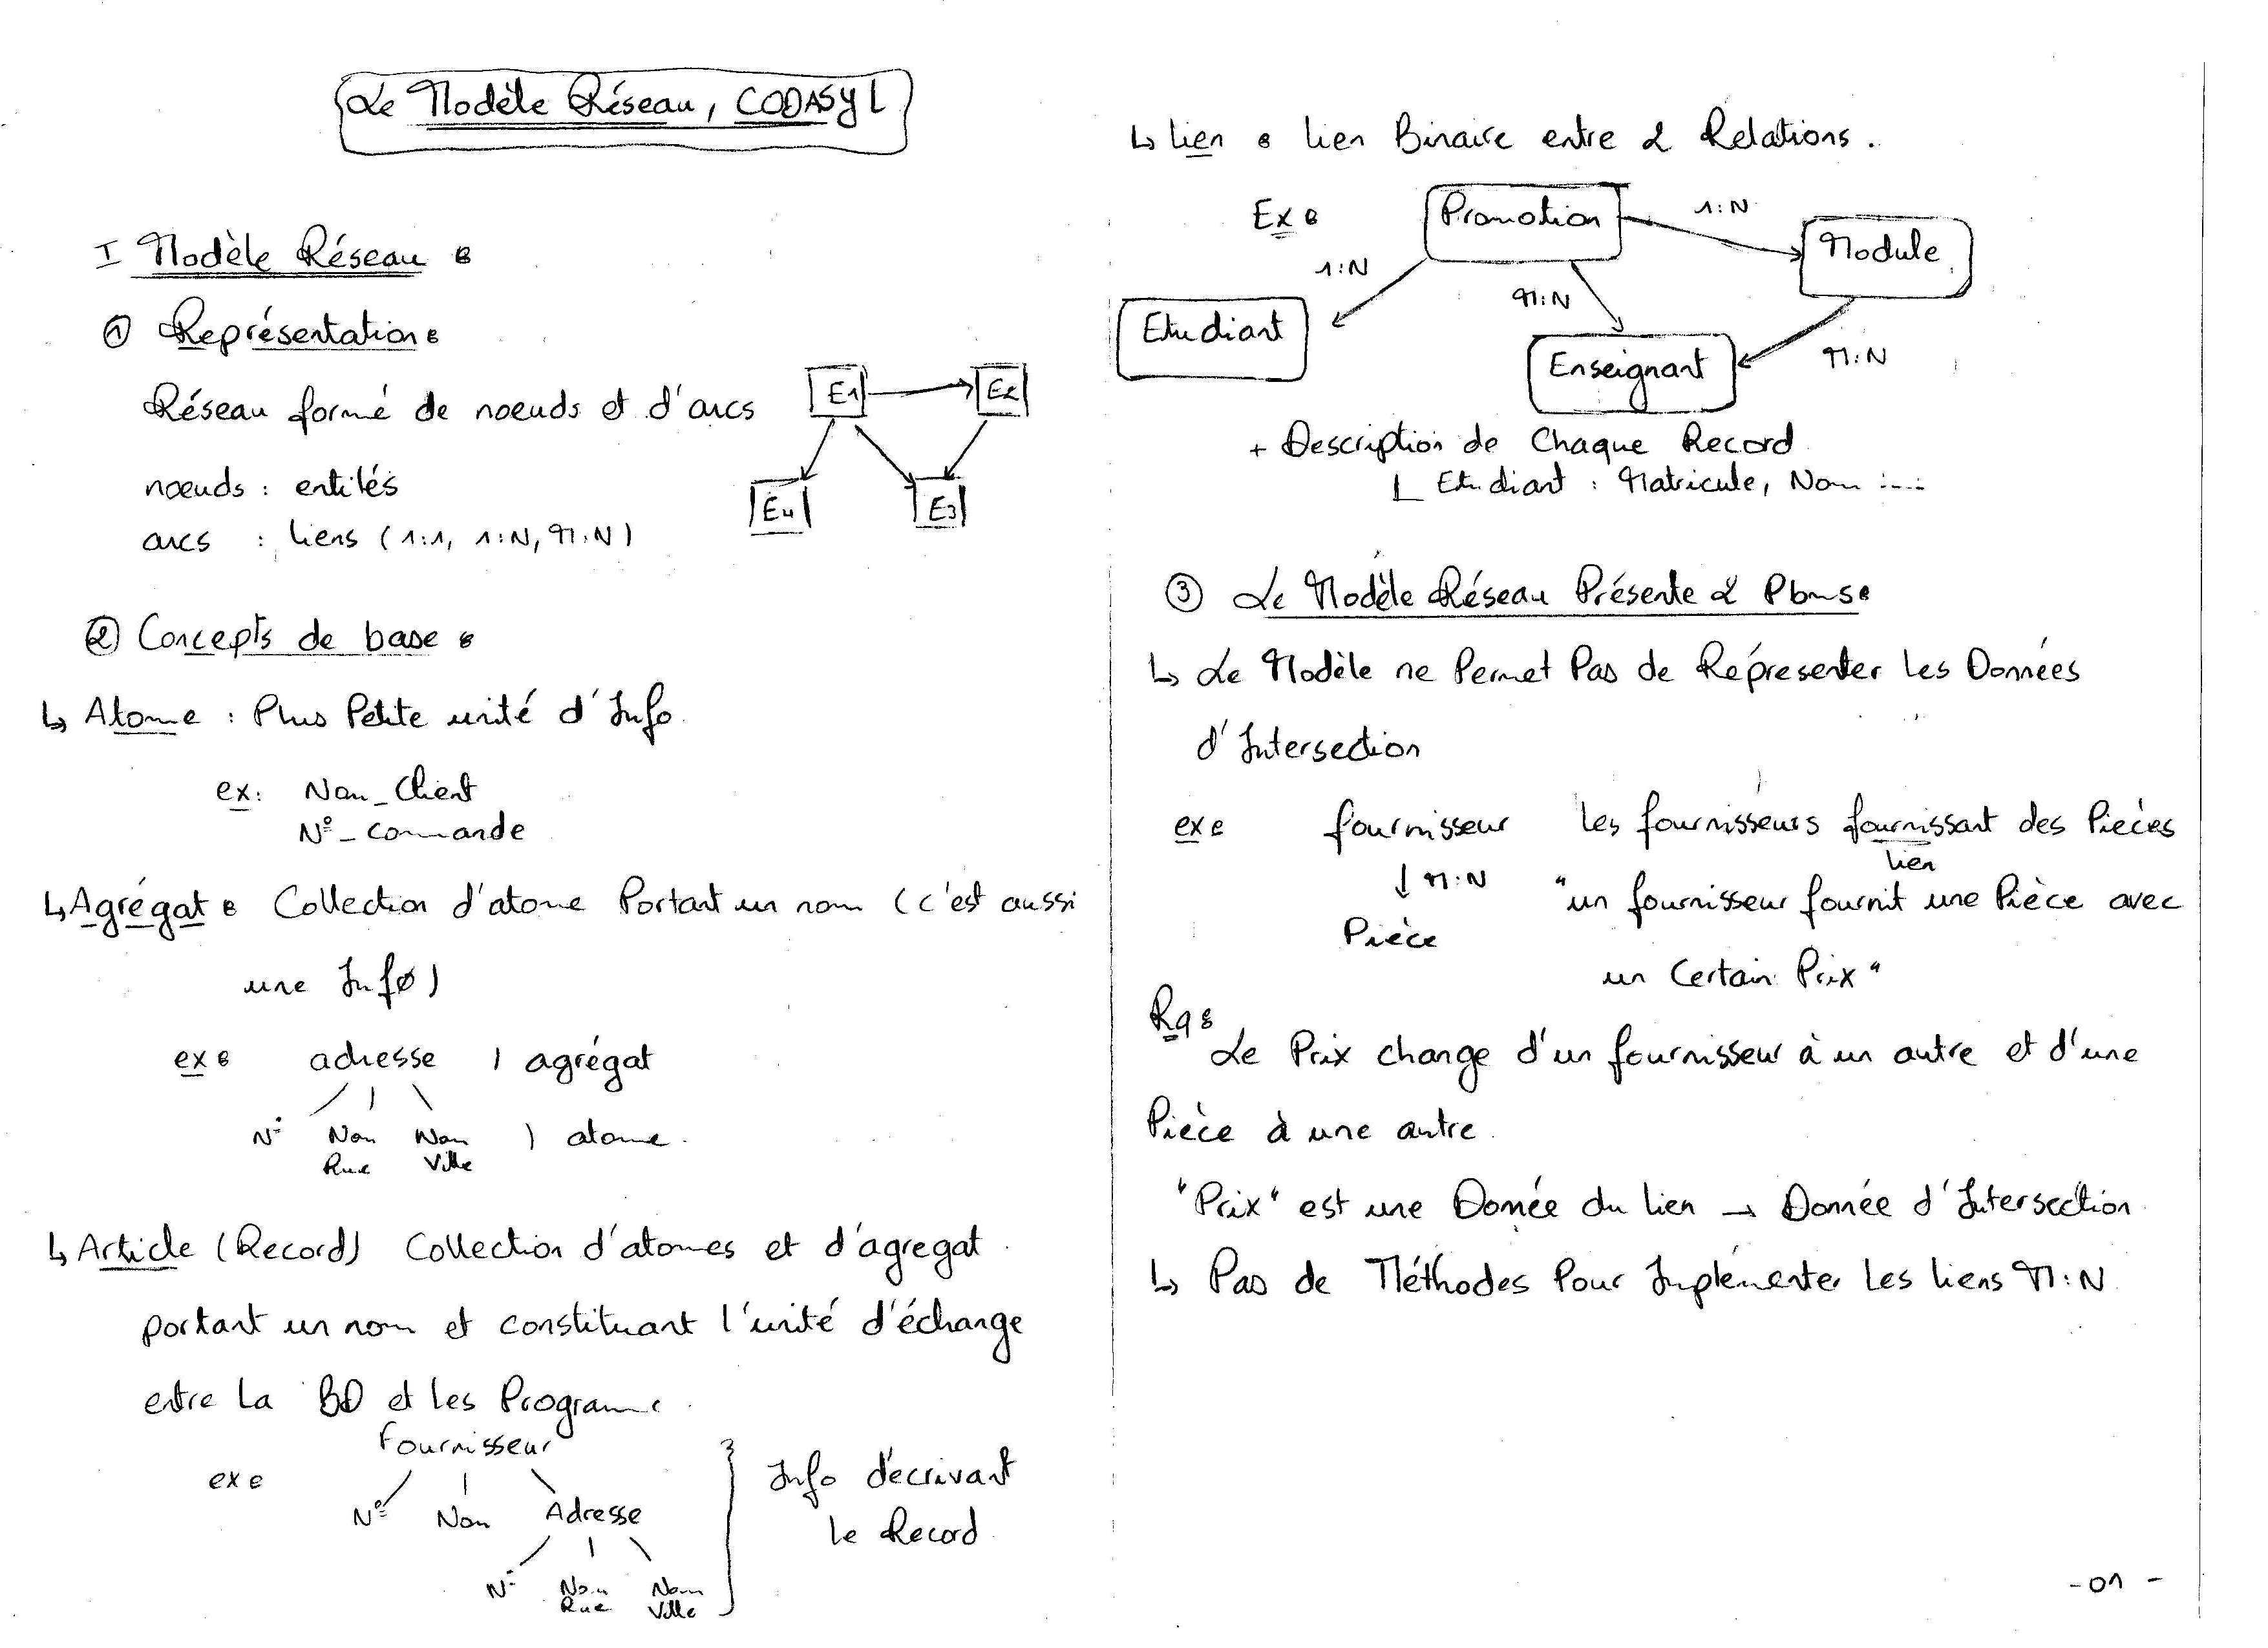 Le Modèle Réseau, CODASYL
I Modèle Réseau :
① Représentation :
Réseau formé de noeuds et d'arcs
noeuds : entités
arcs : liens (1:1, 1:N, M:N)
E1
E2
E4
E3
② Concepts de base :
↳ Atome : Plus Petite unité d'Info
ex: Nom_Client
N°_commande
↳ Agrégat : Collection d'atome Portant un nom (c'est aussi
une Info)
ex : adresse ) agrégat
N° Nom Nom ) atome.
Rue Ville
↳ Article (Record) Collection d'atomes et d'agregat
portant un nom et constituant l'unité d'échange
entre la BD et les Programme.
Fournisseur
ex :
N° Nom Adresse
N° Nom Nom
Rue Ville
Info décrivant
le Record
↳ lien : lien Binaire entre 2 Relations.
Ex :
Promotion
1:N
Module
1:N
M:N
Etudiant
Enseignant
M:N
+ Description de Chaque Record
Etudiant : Matricule, Nom ....
③ Le Modèle Réseau Présente 2 Pbms :
↳ Le Modèle ne Permet Pas de Répresenter les Données
d'Intersection
ex : fournisseur les fournisseurs fournissant des Pièces
lien
↓ M:N "un fournisseur fournit une Pièce avec
Pièce
un Certain Prix"
Rq :
Le Prix change d'un fournisseur à un autre et d'une
Pièce à une autre.
"Prix" est une Donnée du lien → Donnée d'Intersection
↳ Pas de Méthodes Pour Implémenter les liens M:N
- 01 -